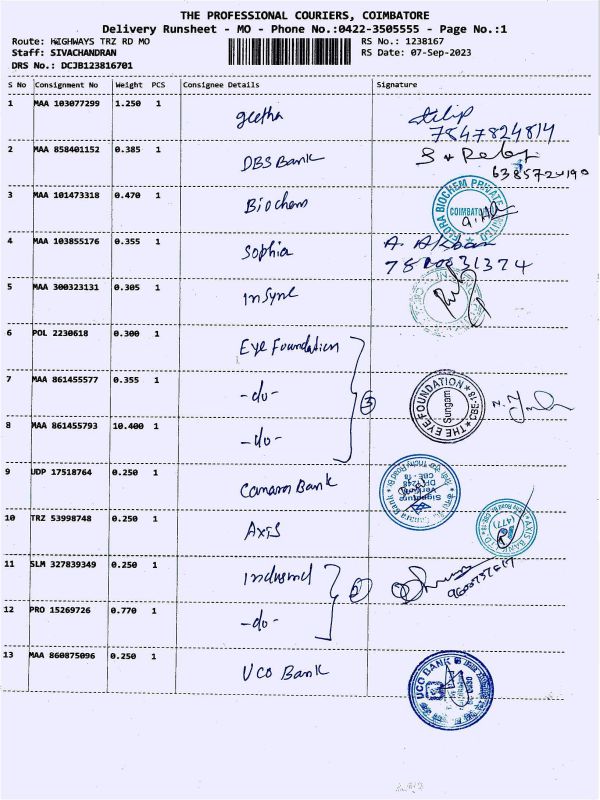 THE PROFESSIONAL COURIERS, COIMBATORE
Delivery Runsheet - MO - Phone No.:0422-3505555 - Page No.:1
Route: HIGHWAYS TRZ RD MO RS No.: 1238167
Staff: SIVACHANDRAN RS Date: 07-Sep-2023
DRS No.: DCJB123816701
S No Consignment No Weight PCS Consignee Details Signature
1 MAA 103077299 1.250 1 geetha Dilip
7847824814
2 MAA 858401152 0.385 1 DBS Bank
6385720190
3 MAA 101473318 0.470 1 Biochem FLORA BIOCHEM PRIVATE LIMITED COIMBATORE
4 MAA 103855176 0.355 1 Sophia A.
5 MAA 300323131 0.305 1 InSync
6 POL 2230618 0.300 1 Eye Foundation
7 MAA 861455577 0.355 1 -do- 3 THE EYE FOUNDATION CBE-18 Sungam
8 MAA 861455793 10.400 1 -do-
9 UDP 17518764 0.250 1 Canara Bank Canara Bank
10 TRZ 53998748 0.250 1 Axis AXIS BANK
11 SLM 327839349 0.250 1 Indusind 2
12 PRO 15269726 0.770 1 -do-
13 MAA 860875096 0.250 1 UCO Bank UCO BANK